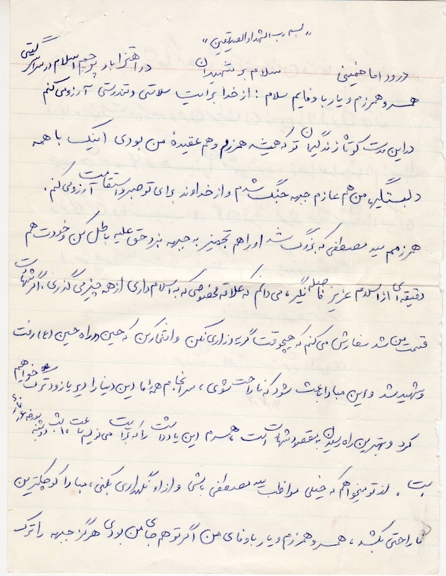 "بسم رب الشهداء والصدیقین"
درود بر امام خمینی سلام بر شهیدان در اهتزاز باد پرچم اسلام در سراسر گیتی
همسر و همرزم و یار با وفایم سلام : از خدا برایت سلامتی و تندرستی آرزو می کنم
در این مدت کوتاه زندگیمان تو که همیشه همرزم و هم عقیده من بودی اینک با همه
دلبستگیم من هم عازم جبهه جنگ شدم و از خداوند برای تو صبر و استقامت آرزو می کنم.
هرزمم سید مصطفی که بزرگ شد او را هم تجهیز به جبهه نبرد حق علیه باطل کن و خودت هم
دقیقه ای از اسلام عزیز فاصله نگیر، می دانم که علاقه مخصوصی که به اسلام داری از همه چیز می گذری. اگر شهادت
قسمت من شد سفارش می کنم که هیچوقت گریه و زاری نکن و افتخار کن که حسین در راه حسین (ع) رفت
و شهید شد و این مبادا باعث شود که ناراحت شوی، سرانجام همه ما این دنیا را دیر یا زود ترک خواهیم
کرد و بهترین راه رسیدن به مقصود شهادت است، همسرم این یادداشت را که برایت می نویسم ساعت ۱۰ شب
است. از تو میخواهم که خیلی مواظب سید مصطفی باشی و از او نگهداری بکنی، مبادا کوچکترین
ناراحتی بکشد، همسر و همرزم و یار با وفای من اگر تو هم جای من بودی هرگز جبهه را ترک